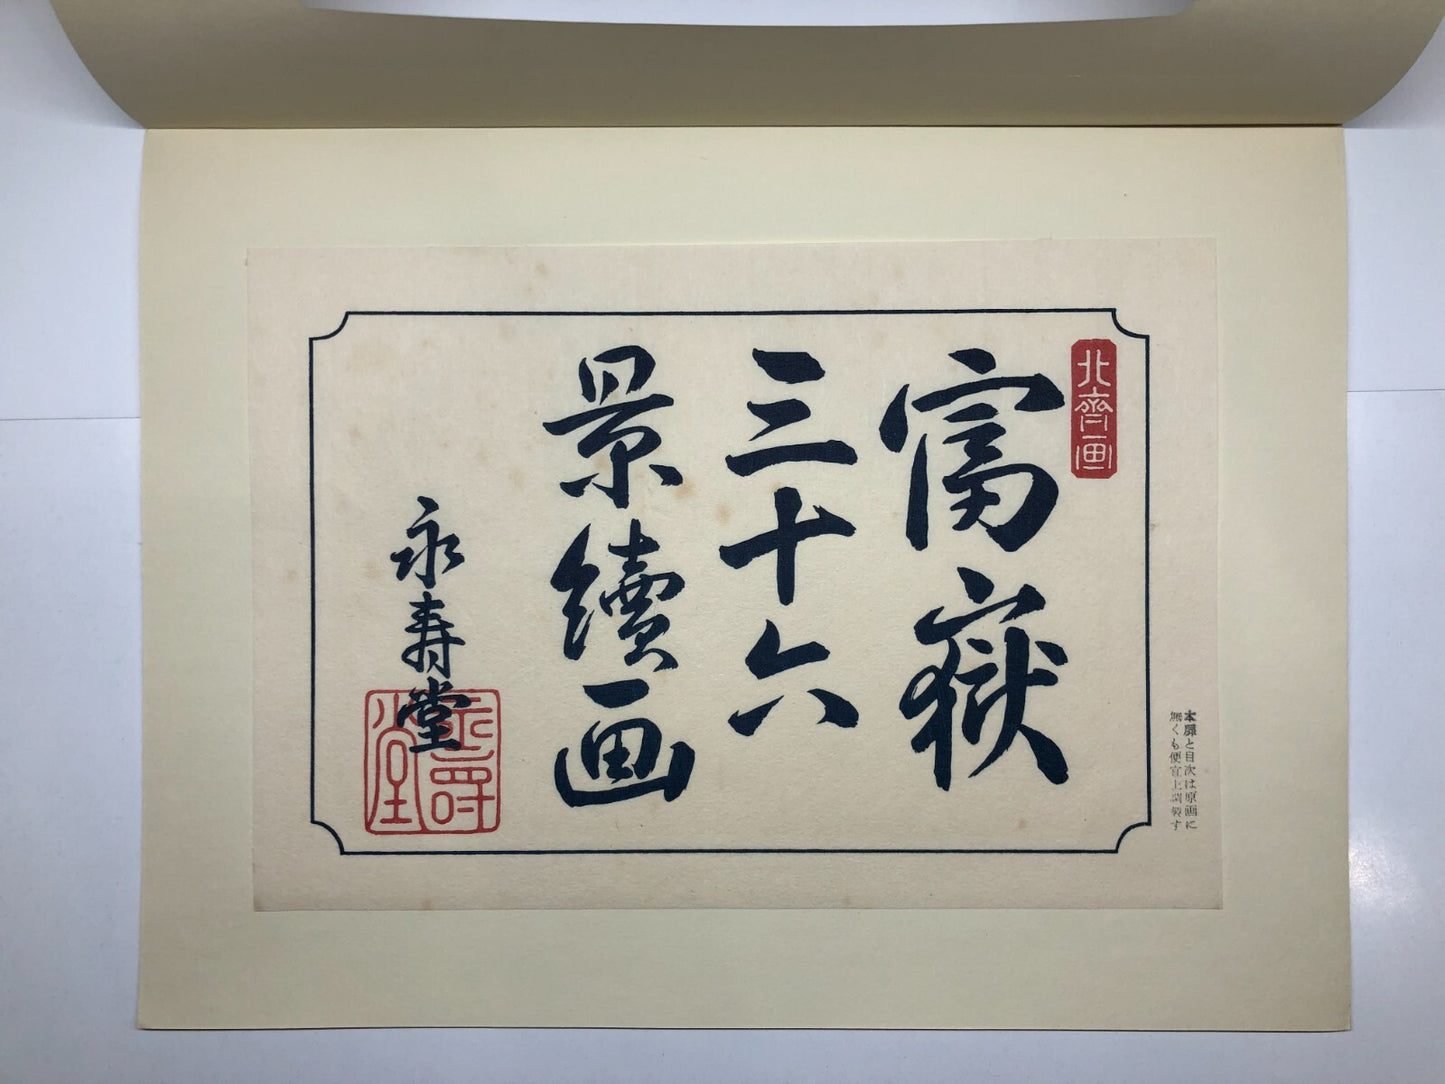 北齋画
富嶽
三十六
景續画
永寿堂
本扉と目次は原画に
無くも便宜上調製す